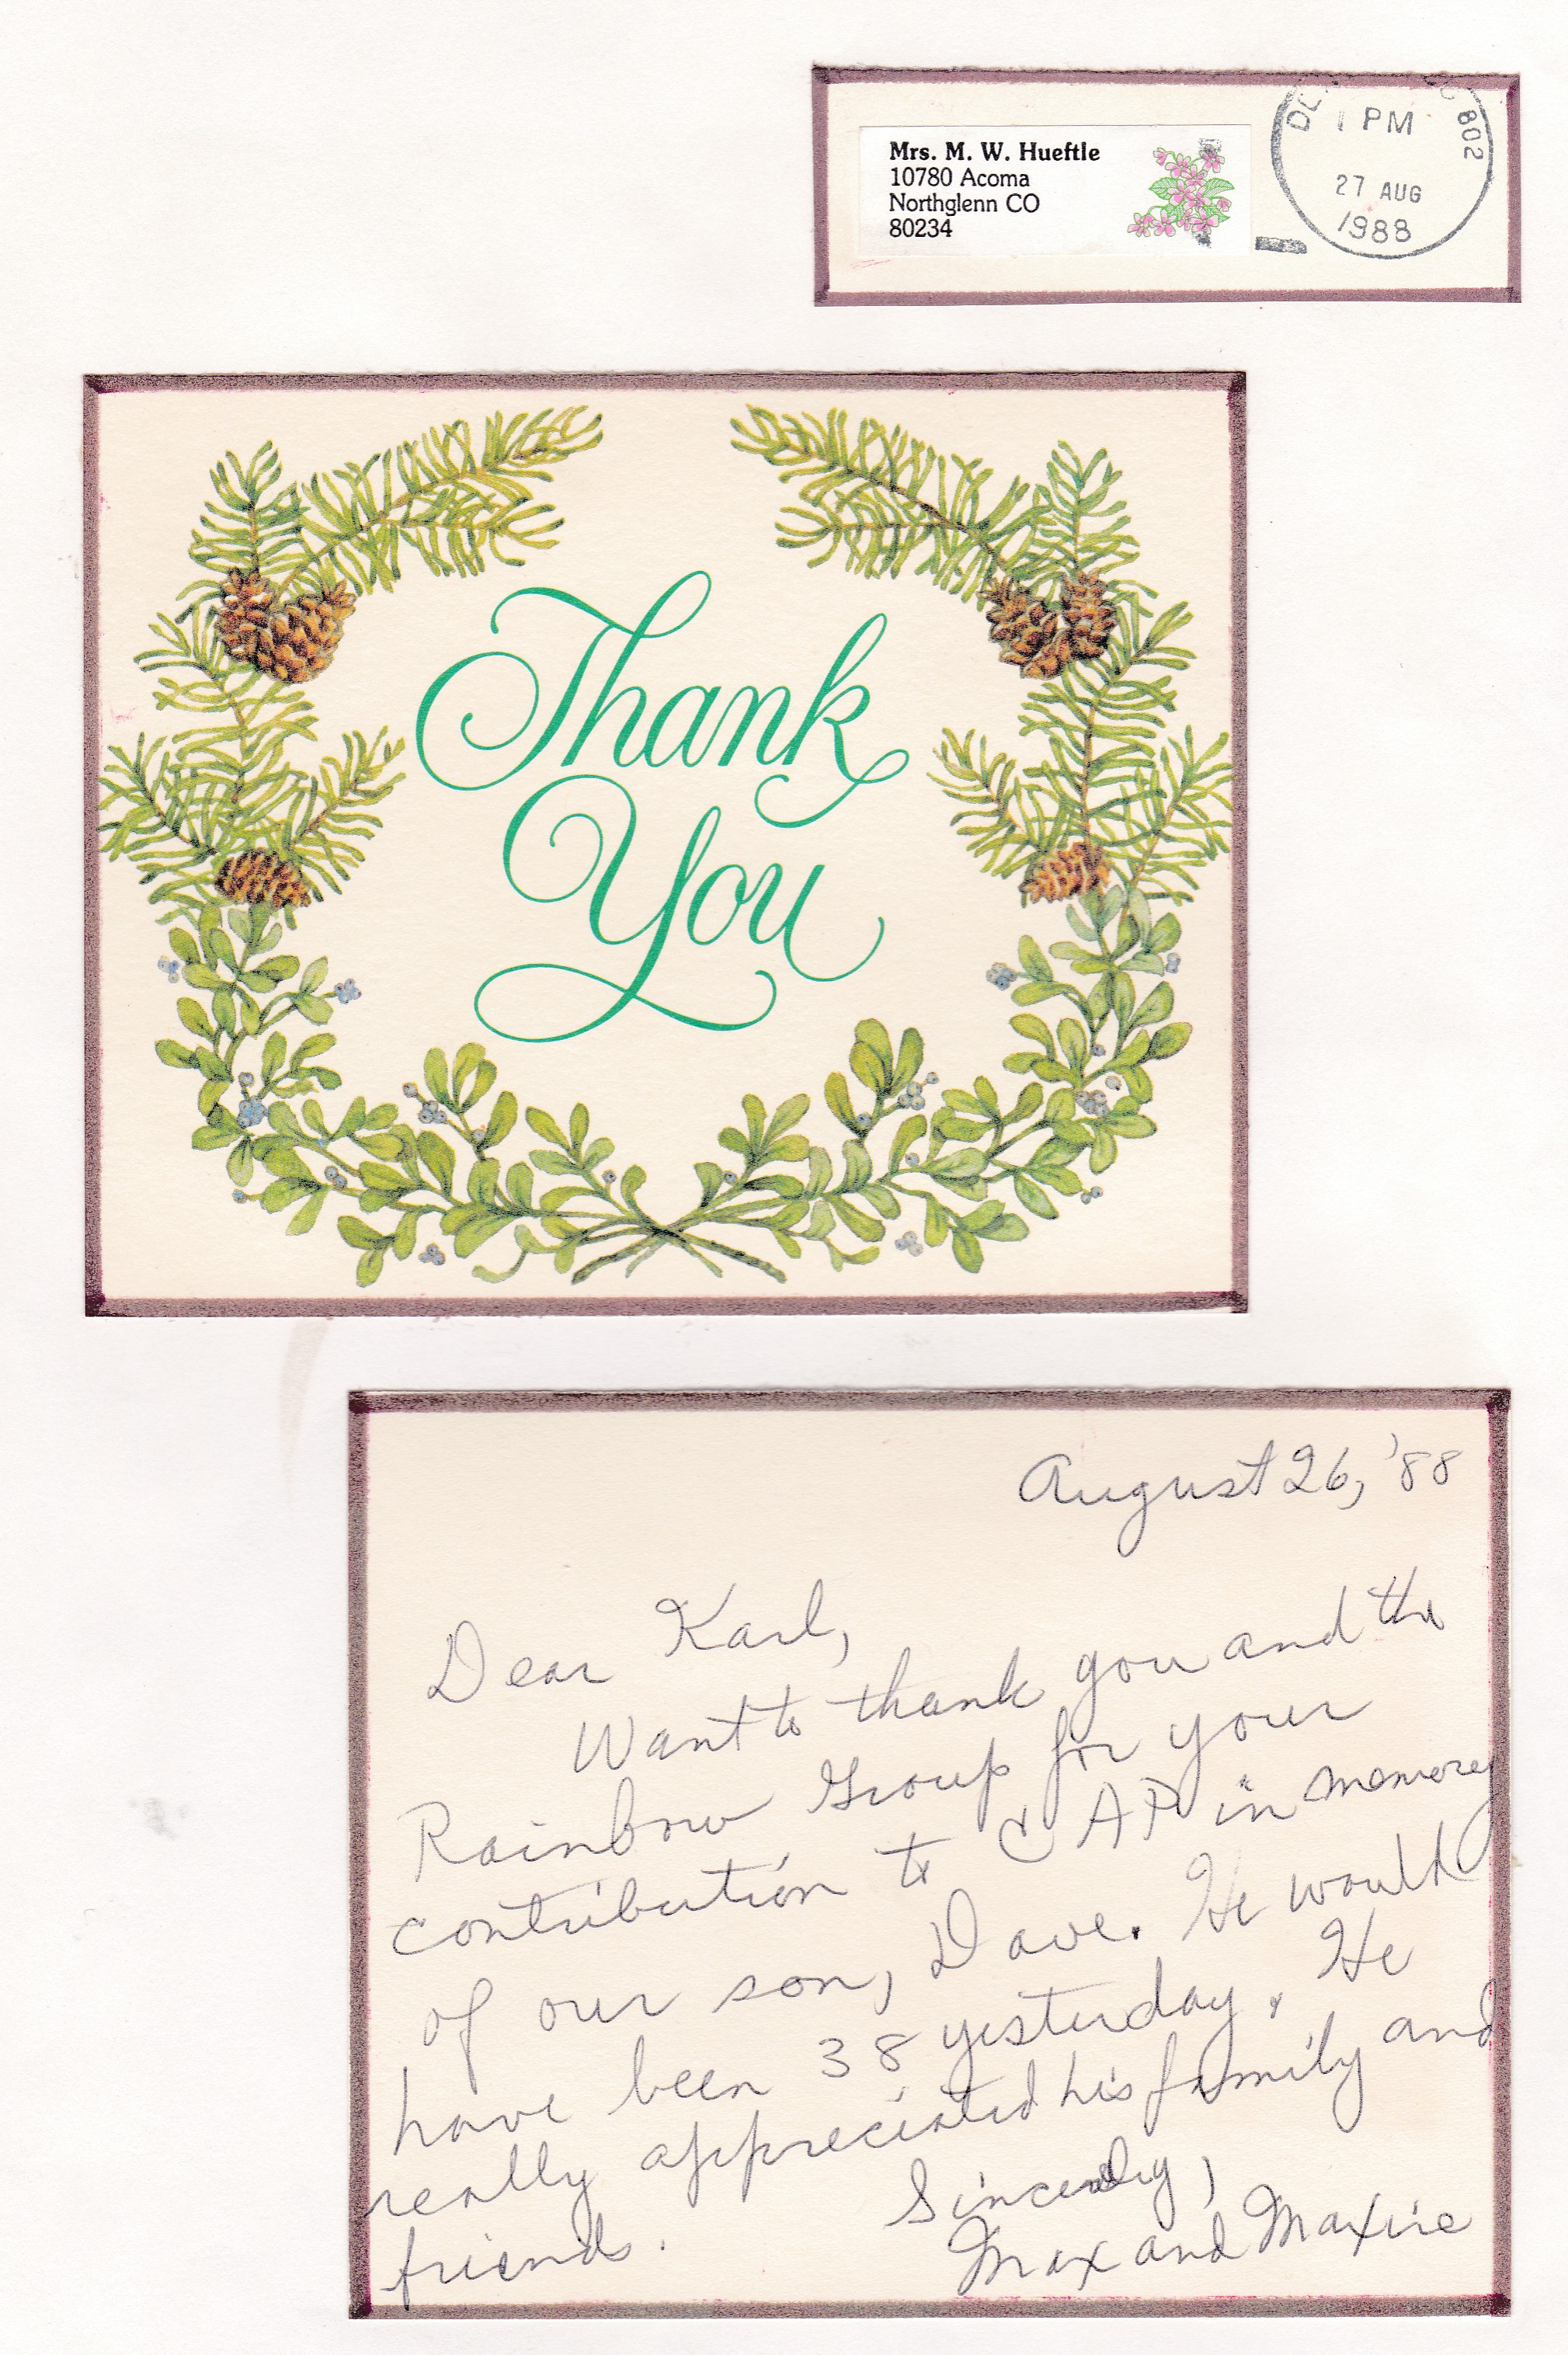 Mrs. M. W. Hueftle
10780 Acoma
Northglenn CO
80234
1 PM
802
27 AUG
1988
Thank
You
August 26, '88
Dear Karl,
Want to thank you and the
Rainbow Group for your
contribution to CAP in memory
of our son, Dave. He would
have been 38 yesterday. He
really appreciated his family and
friends.
Sincerely,
Max and Maxine